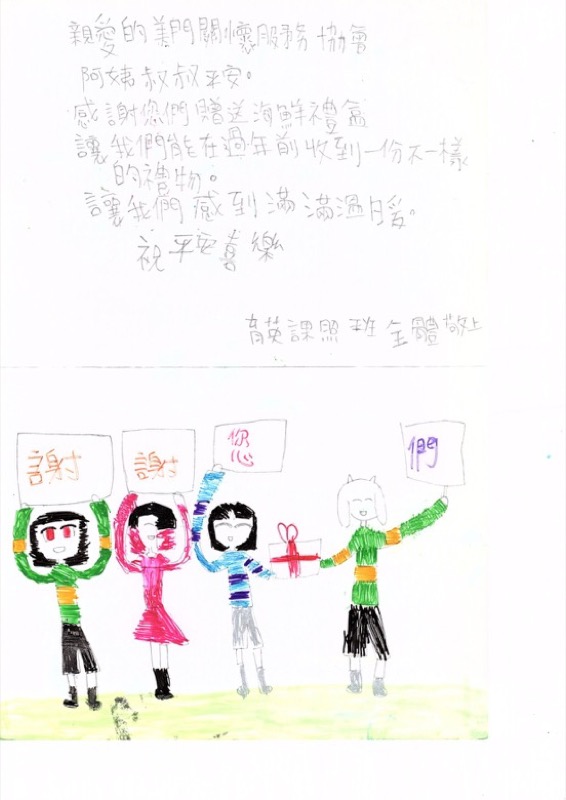 親愛的美門關懷服務協會
阿姨叔叔平安。
感謝您們贈送海鮮禮盒
讓我們能在過年前收到一份不一樣
的禮物。
讓我們感到滿滿溫暖。
祝平安喜樂
育英課照班全體敬上
謝 謝 您 們